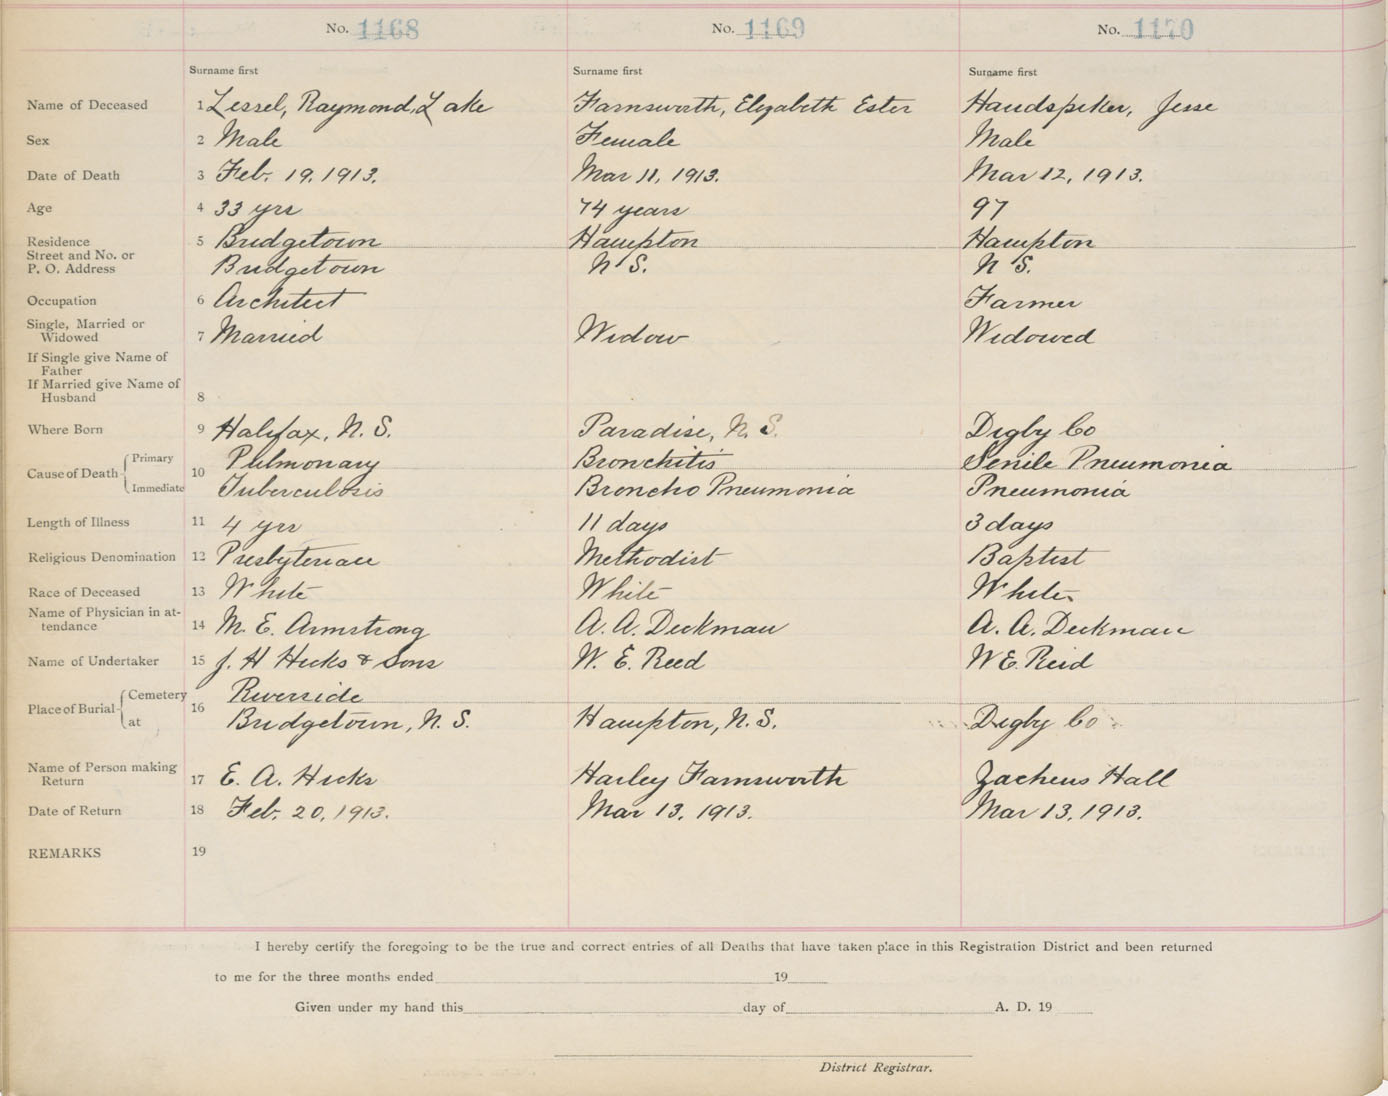 No. 1168 No. 1169 No. 1170
Surname first Surname first Surname first
Name of Deceased 1 Lessel, Raymond, Lake Farnsworth, Elizabeth Ester Handspiker, Jesse
Sex 2 Male Female Male
Date of Death 3 Feb. 19, 1913. Mar 11, 1913. Mar 12, 1913.
Age 4 33 yrs 74 years 97
Residence 5 Bridgetown Hampton Hampton
Street and No. or
P. O. Address Bridgetown N S. N S.
Occupation 6 Architect Farmer
Single, Married or
Widowed 7 Married Widow Widowed
If Single give Name of
Father
If Married give Name of
Husband 8
Where Born 9 Halifax, N. S. Paradise, N. S. Digby Co
Cause of Death Primary 10 Pulmonary Bronchitis Senile Pneumonia
Immediate Tuberculosis Broncho Pneumonia Pneumonia
Length of Illness 11 4 yrs 11 days 3 days
Religious Denomination 12 Presbyterian Methodist Baptist
Race of Deceased 13 White White White
Name of Physician in at-
tendance 14 M. E. Armstrong A. A. Deckman A. A. Deckman
Name of Undertaker 15 J. H Hicks & Sons W. E. Reed W E. Reid
Place of Burial Cemetery 16 Riverside
at Bridgetown, N. S. Hampton, N. S. Digby Co
Name of Person making
Return 17 E. A. Hicks Harley Farnsworth Zacheus Hall
Date of Return 18 Feb. 20, 1913. Mar 13, 1913. Mar 13, 1913.
REMARKS 19
I hereby certify the foregoing to be the true and correct entries of all Deaths that have taken place in this Registration District and been returned
to me for the three months ended 19
Given under my hand this day of A. D. 19
District Registrar.